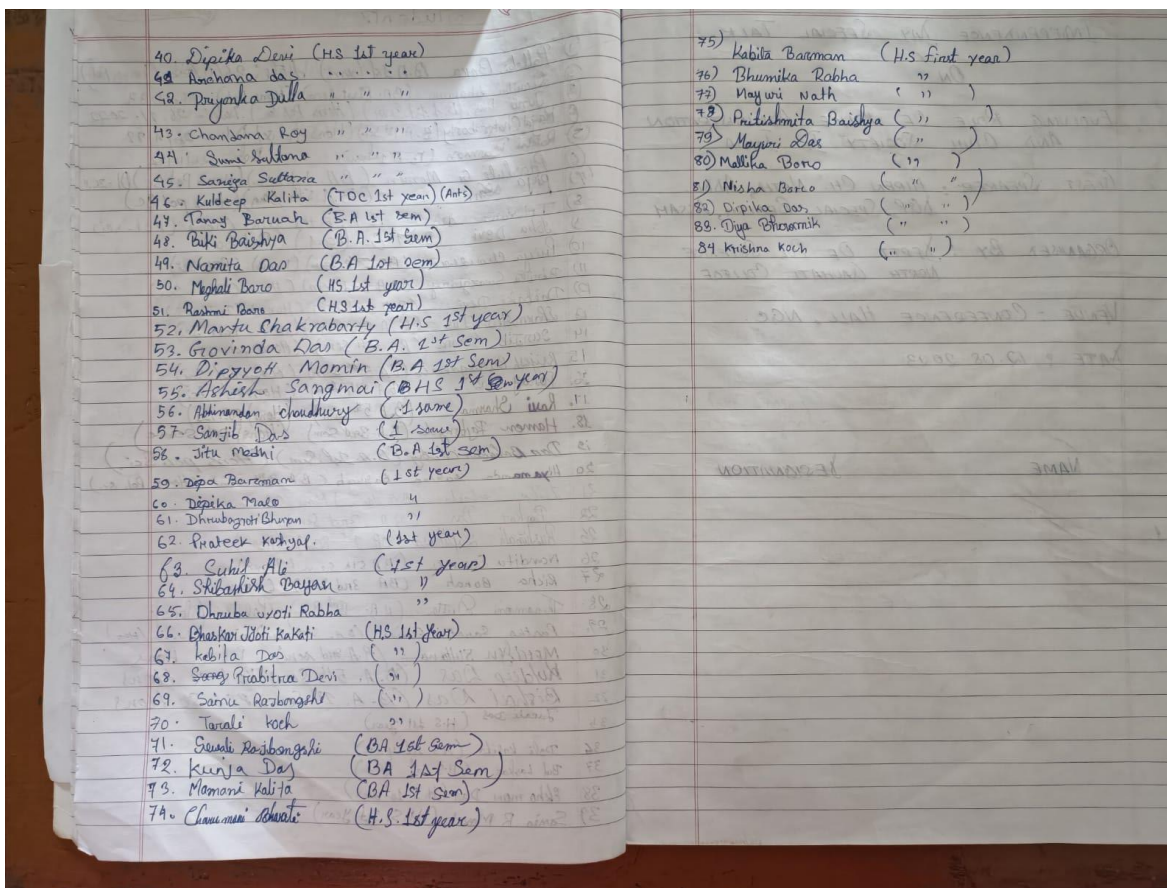 40. Dipika Devi (HS 1st year)
41 Archana das " " "
42. Priyanka Dutta " " "
43. Chandana Roy " " "
44. Sumi Sultana " " "
45. Sariga Sultana " " "
46. Kuldeep Kalita (TOC 1st year) (Arts)
47. Tanay Baruah (B.A 1st sem)
48. Biki Baishya (B.A. 1st Sem)
49. Namita Das (B.A 1st sem)
50. Meghali Baro (HS 1st year)
51. Rashmi Baro (HS 1st year)
52. Mantu Chakrabarty (H.S 1st year)
53. Govinda Das (B.A. 1st Sem)
54. Momin (B.A 1st Sem)
55. Ashish Sangmai (HS 1st year)
56. Abhinandan choudhury (1 same)
57. Sanjib Das (1 same)
58. Jitu Medhi (B.A 1st sem)
59. Dipa Barman (1st year)
60. Dipika Malo "
61. Dhrubajyoti Bhuyan "
62. Prateek Kashyap. (1st year)
63. Suhil Ali (1st year)
64. Shibashish Bayan "
65. Dhruba Jyoti Rabha "
66. Bhaskar Jyoti Kakati (HS 1st year)
67. Kabita Das ( " )
68. Prabitra Devi ( " )
69. Samu Rajbongshi ( " )
70. Tarali Koch "
71. Sewali Rajbongshi (BA 1st Sem)
72. Kunja Das (BA 1st Sem)
73. Mamani Kalita (BA 1st Sem)
74. (H.S. 1st year)
75) Kabita Barman (H.S first year)
76) Bhumika Rabha "
77) Mayuri Nath ( " )
78) Pritishmita Baishya ( " )
79) Mayuri Das ( " )
80) Mallika Boro ( " )
81) Nisha Boro ( " " )
82) Dipika Das ( " " )
83. Diya Bhowmik ( " " )
84 Krishna Koch ( " " )